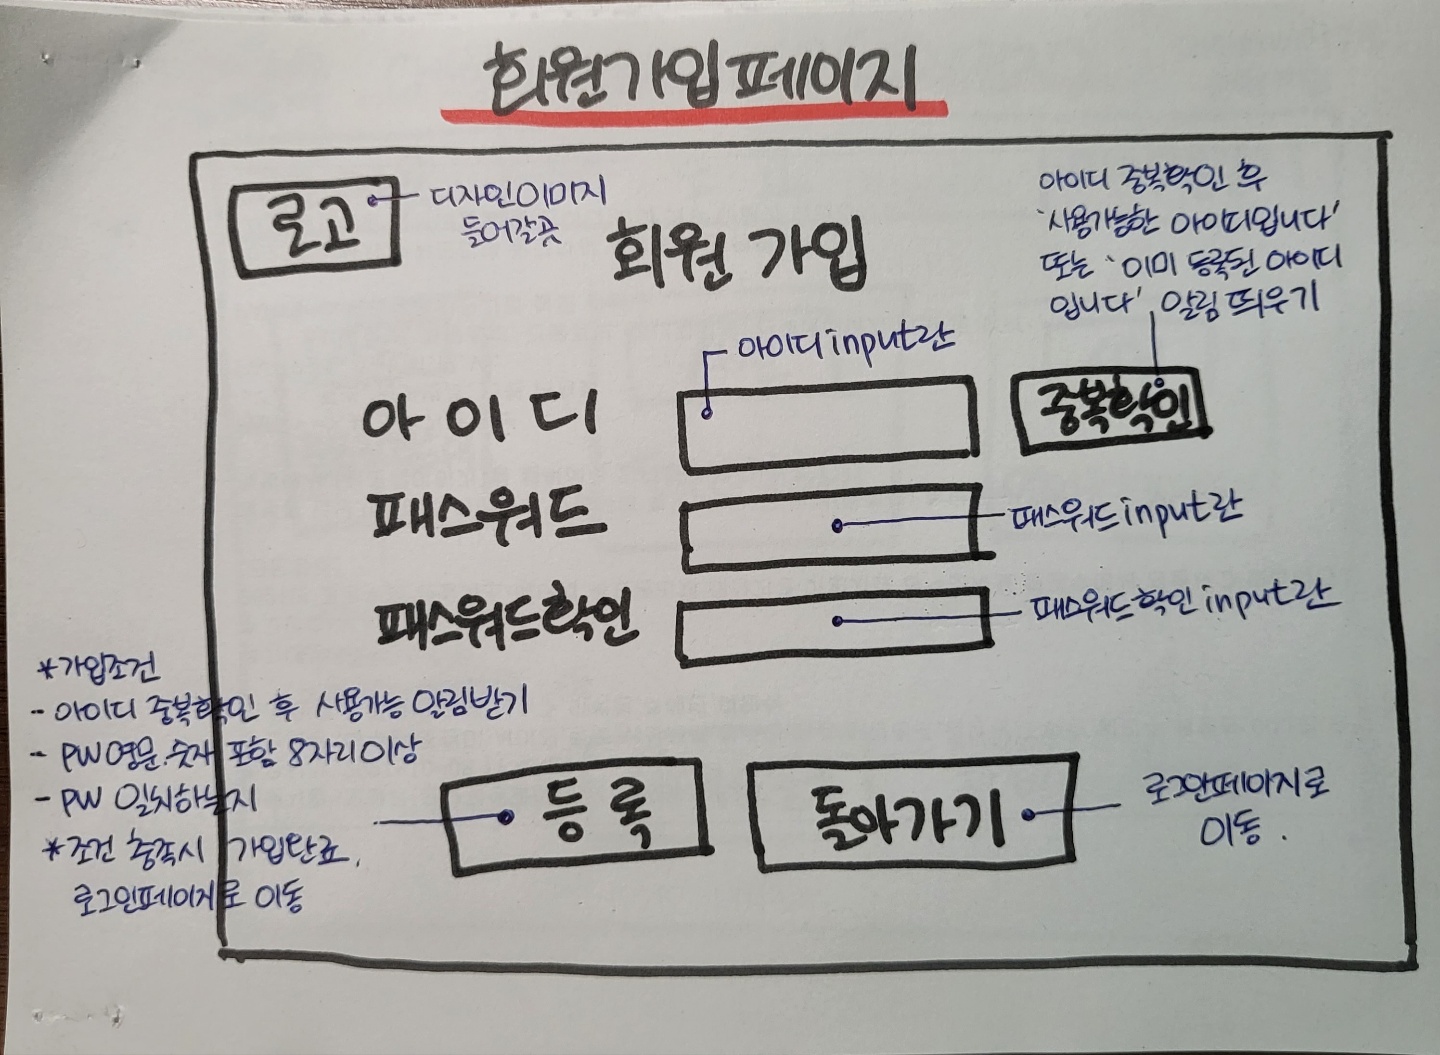 회원가입페이지
로고
디자인이미지
들어갈곳
회원 가입
아이디 중복확인 후
'사용가능한 아이디입니다'
또는 '이미 등록된 아이디
입니다' 알림 띄우기
아이디 input란
아이디
중복확인
패스워드
패스워드 input란
패스워드확인
패스워드확인 input란
*가입조건
- 아이디 중복확인 후 사용가능 알림받기
- PW 영문.숫자 포함 8자리 이상
- PW 일치하는지
*조건 충족시 가입완료.
로그인페이지로 이동
등록
돌아가기
로그인페이지로
이동.